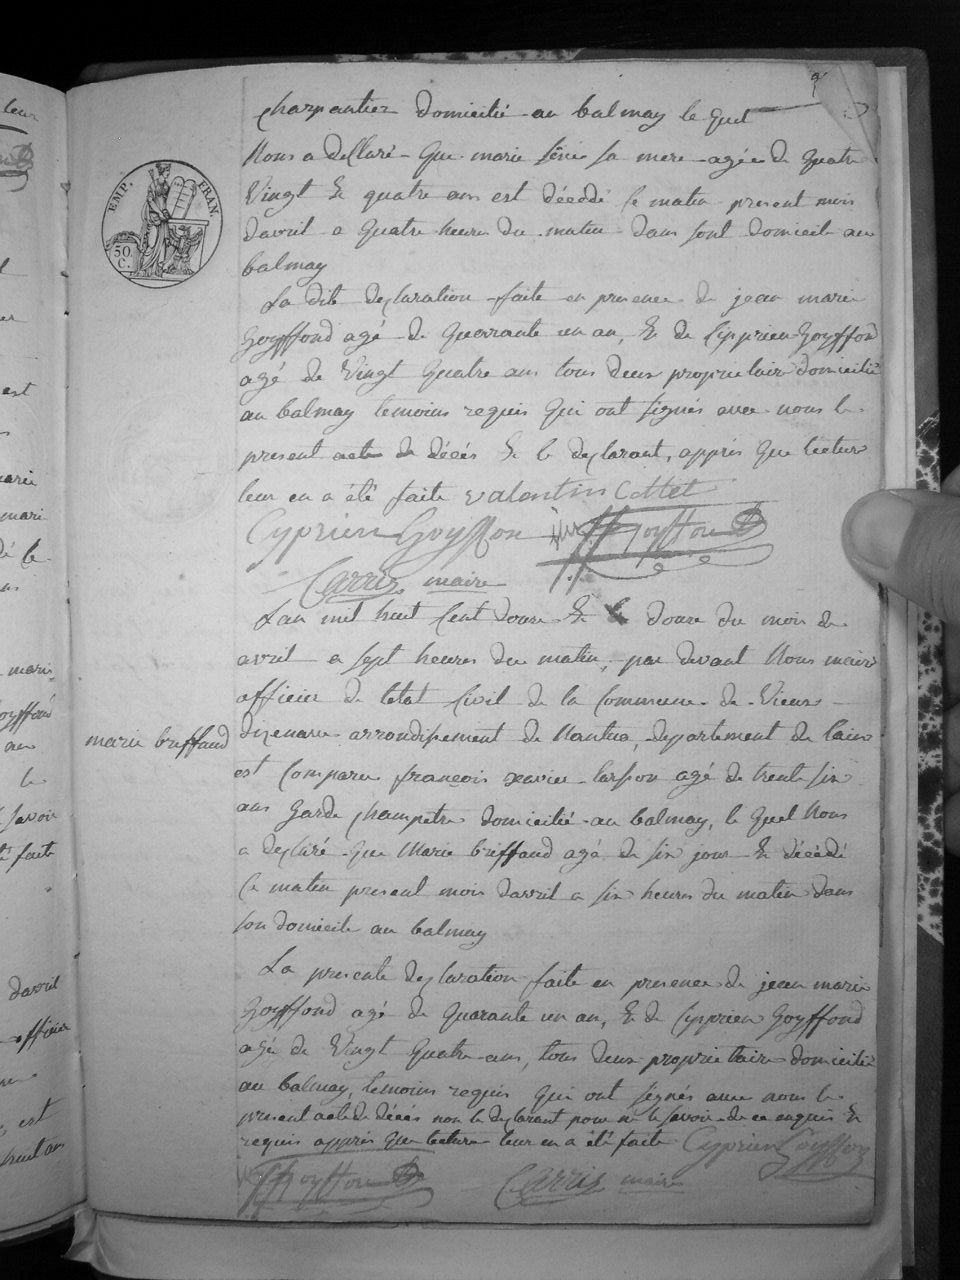 charpantier domicilié au balmay le quel
EMP. FRAN.
50 C.
Nous a dellaré que marie sa mere agée de quatre
Vingt et quatre ans est décédé le matin present mois
davril a quatre heures du matin dans sont domicile au
balmay
La dite declaration faite en presence de jean marie
Goyffond agé de querrante un an, et de Cipprien Goyffond
agé de Vingt quatre ans tous deux proprietaire domicilié
au balmay temoins requis qui ont signés avec nous le
present acte de décés et le declarant, apprés que lecture
leur en a été faite valentin Cottet
Cyprien Goyffon Goyffon
Carrier maire
Lan mil huit Cent douze et le douze du mois de
avril a sept heures du matin, par devant Nous maire
officier de letat Civil de la Commune de Vieux
dizenave arrondisement de Nantua, departement de lain
marie breffaud
est Comparu françois xavier agé de trente six
ans garde champetre domicilié au balmay, le quel Nous
a declaré que Marie breffaud agé de six jour et décédé
le matin present mois davril a six heures du matin dans
son domicile au balmay
La presente declaration faite en presence de jean marie
Goyffond agé de quarante un an, et de Cipprien Goyffond
agé de Vingt quatre ans, tous deux proprietaire domicilié
au balmay, temoins requis qui ont signés avec nous le
present acte de décés non le declarant pour ne le savoir de ce enquis et
requis apprés que lecture leur en a été faite Cyprien Goyffon
Goyffon Carrier maire